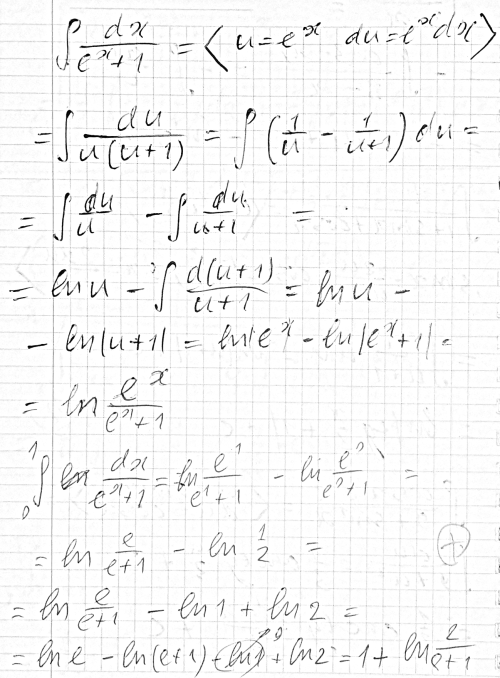 ∫ dx/(e^x+1) = ⟨ u=e^x du=e^x dx ⟩
= ∫ du/(u(u+1)) = ∫ (1/u - 1/(u+1)) du =
= ∫ du/u - ∫ du/(u+1) =
= ln u - ∫ d(u+1)/(u+1) = ln u -
- ln|u+1| = ln|e^x| - ln|e^x+1| =
= ln e^x/(e^x+1)
∫_0^1 dx/(e^x+1) = ln e^1/(e^1+1) - ln e^0/(e^0+1) =
= ln e/(e+1) - ln 1/2 = +
= ln e/(e+1) - ln 1 + ln 2 =
= ln e - ln(e+1) - ln 1 + ln 2 = 1 + ln 2/(e+1)